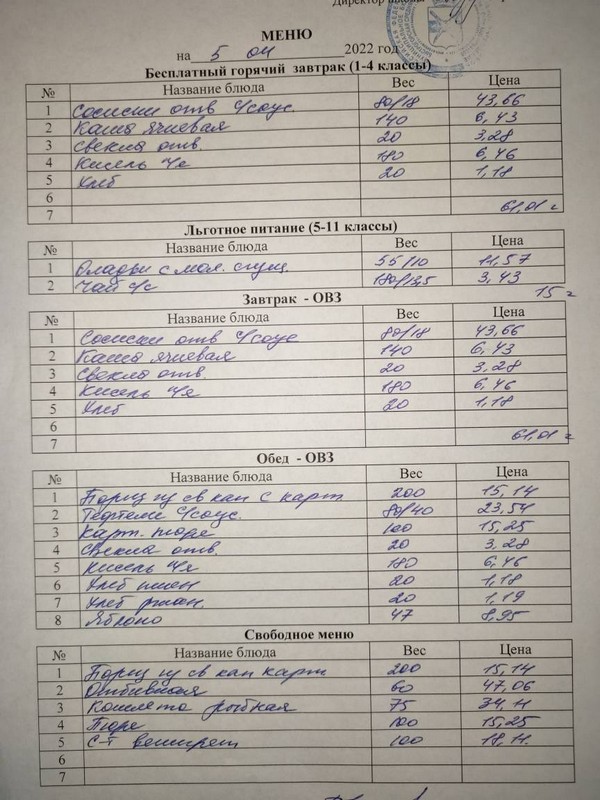 Директор школы
МЕНЮ
на 5 2022 год
Бесплатный горячий завтрак (1-4 классы)
№ Название блюда Вес Цена
1 Сосиски отв с/соус. 80/18 43,66
2 Каша ячневая 140 6,43
3 Свекла отв. 20 3,28
4 Кисель 180 6,46
5 Хлеб 20 1,18
6
7 61,01
Льготное питание (5-11 классы)
№ Название блюда Вес Цена
1 Оладьи с мол. сгущ. 55/10 11,57
2 Чай с/с 180/13,5 3,43
15
Завтрак - ОВЗ
№ Название блюда Вес Цена
1 Сосиски отв с/соус 80/18 43,66
2 Каша ячневая 140 6,43
3 Свекла отв. 20 3,28
4 Кисель 180 6,46
5 Хлеб 20 1,18
6
7 61,01
Обед - ОВЗ
№ Название блюда Вес Цена
1 Борщ из св кап с карт 200 15,14
2 Тефтели с/соус. 80/40 23,54
3 Карт. пюре 100 15,25
4 Свекла отв. 20 3,28
5 Кисель 180 6,46
6 Хлеб пшен 20 1,18
7 Хлеб ржан. 20 1,19
8 Яблоко 47 8,95
Свободное меню
№ Название блюда Вес Цена
1 Борщ из св кап карт 200 15,14
2 Отбивная 60 47,06
3 Котлета рыбная 75 34,11
4 Пюре 100 15,25
5 С-т винегрет 100 18,11.
6
7